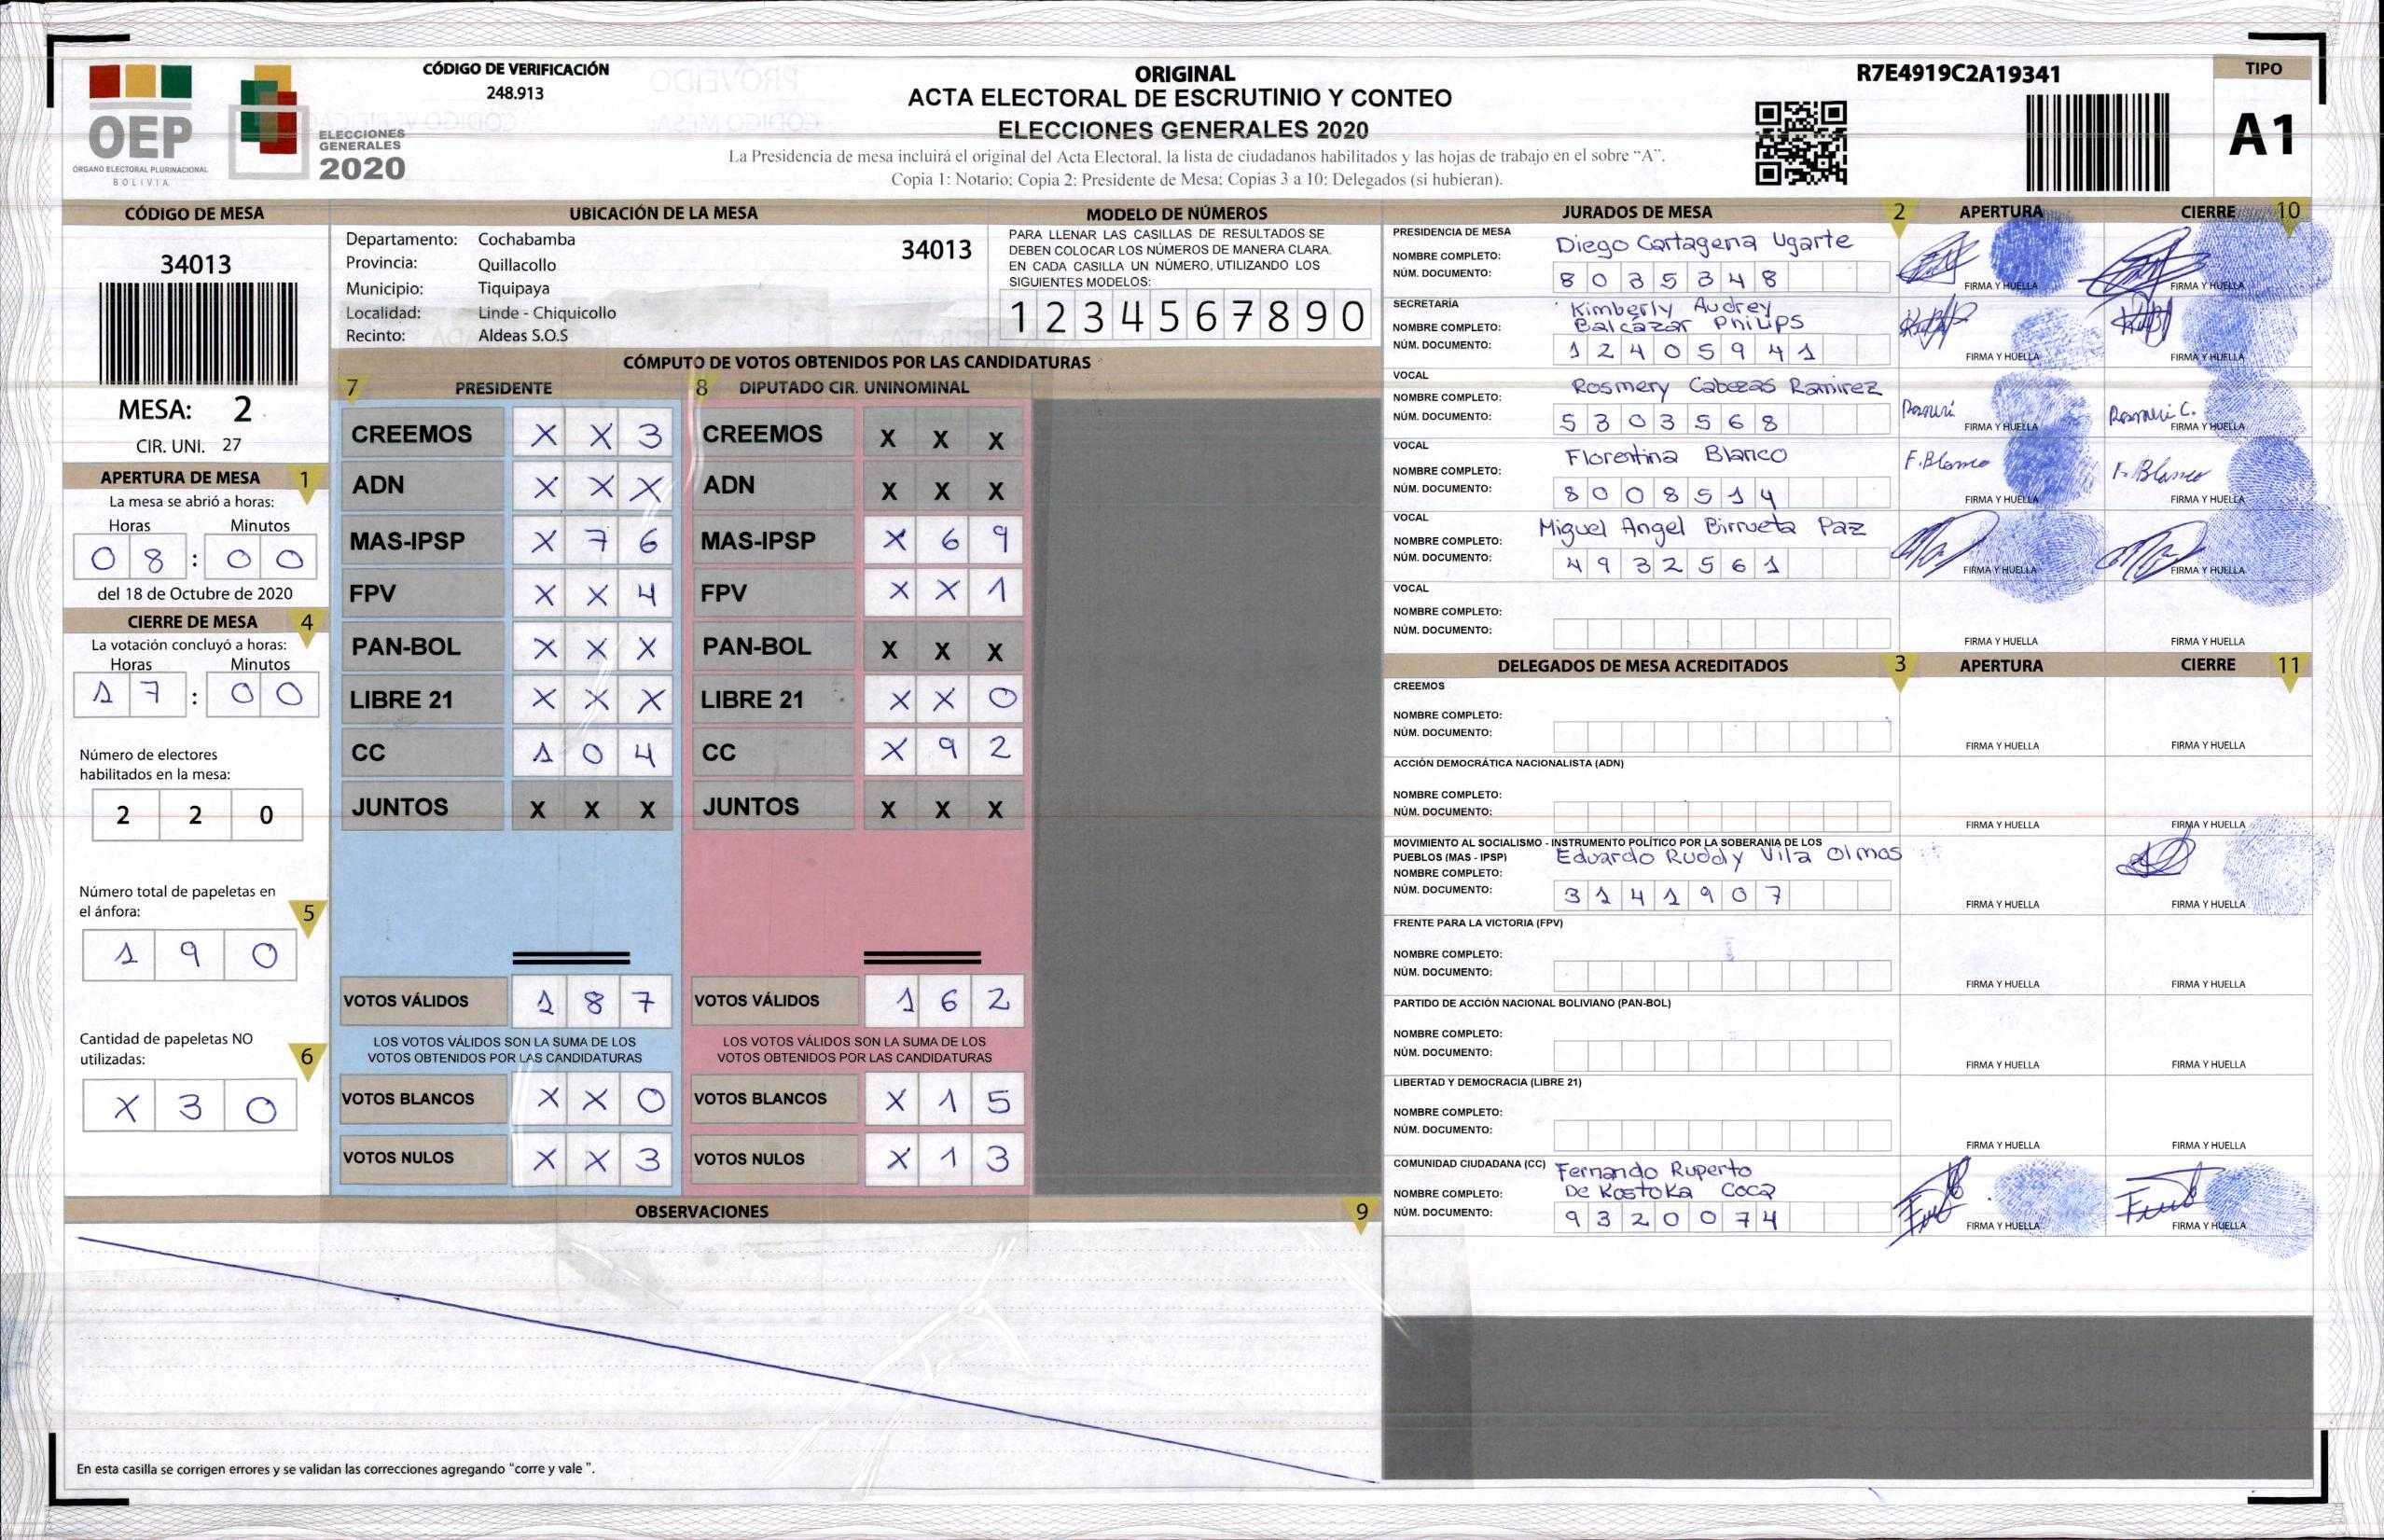 OEP
ÓRGANO ELECTORAL PLURINACIONAL
BOLIVIA
ELECCIONES
GENERALES
2020
CÓDIGO DE VERIFICACIÓN
248.913
ORIGINAL
ACTA ELECTORAL DE ESCRUTINIO Y CONTEO
ELECCIONES GENERALES 2020
La Presidencia de mesa incluirá el original del Acta Electoral, la lista de ciudadanos habilitados y las hojas de trabajo en el sobre “A”.
Copia 1: Notario; Copia 2: Presidente de Mesa; Copias 3 a 10: Delegados (si hubieran).
R7E4919C2A19341
TIPO
A1
CÓDIGO DE MESA
34013
MESA: 2
CIR. UNI. 27
APERTURA DE MESA 1
La mesa se abrió a horas:
Horas Minutos
08:00
del 18 de Octubre de 2020
CIERRE DE MESA 4
La votación concluyó a horas:
Horas Minutos
17:00
Número de electores
habilitados en la mesa:
2 2 0
Número total de papeletas en
el ánfora: 5
1 9 0
Cantidad de papeletas NO
utilizadas: 6
X 3 0
UBICACIÓN DE LA MESA
Departamento: Cochabamba 34013
Provincia: Quillacollo
Municipio: Tiquipaya
Localidad: Linde - Chiquicollo
Recinto: Aldeas S.O.S
MODELO DE NÚMEROS
PARA LLENAR LAS CASILLAS DE RESULTADOS SE
DEBEN COLOCAR LOS NÚMEROS DE MANERA CLARA.
EN CADA CASILLA UN NÚMERO, UTILIZANDO LOS
SIGUIENTES MODELOS:
1 2 3 4 5 6 7 8 9 0
CÓMPUTO DE VOTOS OBTENIDOS POR LAS CANDIDATURAS
7 PRESIDENTE 8 DIPUTADO CIR. UNINOMINAL
CREEMOS X X 3 CREEMOS X X X
ADN X X X ADN X X X
MAS-IPSP X 7 6 MAS-IPSP X 6 9
FPV X X 4 FPV X X 1
PAN-BOL X X X PAN-BOL X X X
LIBRE 21 X X X LIBRE 21 X X 0
CC 1 0 4 CC X 9 2
JUNTOS X X X JUNTOS X X X
VOTOS VÁLIDOS 1 8 7 VOTOS VÁLIDOS 1 6 2
LOS VOTOS VÁLIDOS SON LA SUMA DE LOS LOS VOTOS VÁLIDOS SON LA SUMA DE LOS
VOTOS OBTENIDOS POR LAS CANDIDATURAS VOTOS OBTENIDOS POR LAS CANDIDATURAS
VOTOS BLANCOS X X 0 VOTOS BLANCOS X 1 5
VOTOS NULOS X X 3 VOTOS NULOS X 1 3
OBSERVACIONES 9
En esta casilla se corrigen errores y se validan las correcciones agregando “corre y vale ”.
JURADOS DE MESA 2 APERTURA CIERRE 10
PRESIDENCIA DE MESA
NOMBRE COMPLETO: Diego Cartagena Ugarte
NÚM. DOCUMENTO: 8035348
FIRMA Y HUELLA FIRMA Y HUELLA
SECRETARÍA
Kimberly Audrey
NOMBRE COMPLETO: Balcázar Philips
NÚM. DOCUMENTO: 12405941
FIRMA Y HUELLA FIRMA Y HUELLA
VOCAL
NOMBRE COMPLETO: Rosmery Cabezas Ramirez
NÚM. DOCUMENTO: 5303568
Rosmeri C.
FIRMA Y HUELLA FIRMA Y HUELLA
VOCAL
NOMBRE COMPLETO: Florentina Blanco
NÚM. DOCUMENTO: 8008514
F. Blanco F. Blanco
FIRMA Y HUELLA FIRMA Y HUELLA
VOCAL
NOMBRE COMPLETO: Miguel Angel Birrueta Paz
NÚM. DOCUMENTO: 4932561
FIRMA Y HUELLA FIRMA Y HUELLA
VOCAL
NOMBRE COMPLETO:
NÚM. DOCUMENTO:
FIRMA Y HUELLA FIRMA Y HUELLA
DELEGADOS DE MESA ACREDITADOS 3 APERTURA CIERRE 11
CREEMOS
NOMBRE COMPLETO:
NÚM. DOCUMENTO:
FIRMA Y HUELLA FIRMA Y HUELLA
ACCIÓN DEMOCRÁTICA NACIONALISTA (ADN)
NOMBRE COMPLETO:
NÚM. DOCUMENTO:
FIRMA Y HUELLA FIRMA Y HUELLA
MOVIMIENTO AL SOCIALISMO - INSTRUMENTO POLÍTICO POR LA SOBERANIA DE LOS
PUEBLOS (MAS - IPSP) Eduardo Ruddy Vila Olmos
NOMBRE COMPLETO:
NÚM. DOCUMENTO: 3141907
FIRMA Y HUELLA FIRMA Y HUELLA
FRENTE PARA LA VICTORIA (FPV)
NOMBRE COMPLETO:
NÚM. DOCUMENTO:
FIRMA Y HUELLA FIRMA Y HUELLA
PARTIDO DE ACCIÓN NACIONAL BOLIVIANO (PAN-BOL)
NOMBRE COMPLETO:
NÚM. DOCUMENTO:
FIRMA Y HUELLA FIRMA Y HUELLA
LIBERTAD Y DEMOCRACIA (LIBRE 21)
NOMBRE COMPLETO:
NÚM. DOCUMENTO:
FIRMA Y HUELLA FIRMA Y HUELLA
COMUNIDAD CIUDADANA (CC) Fernando Ruperto
NOMBRE COMPLETO: De Kostoka Coca
NÚM. DOCUMENTO: 9320074
FIRMA Y HUELLA FIRMA Y HUELLA